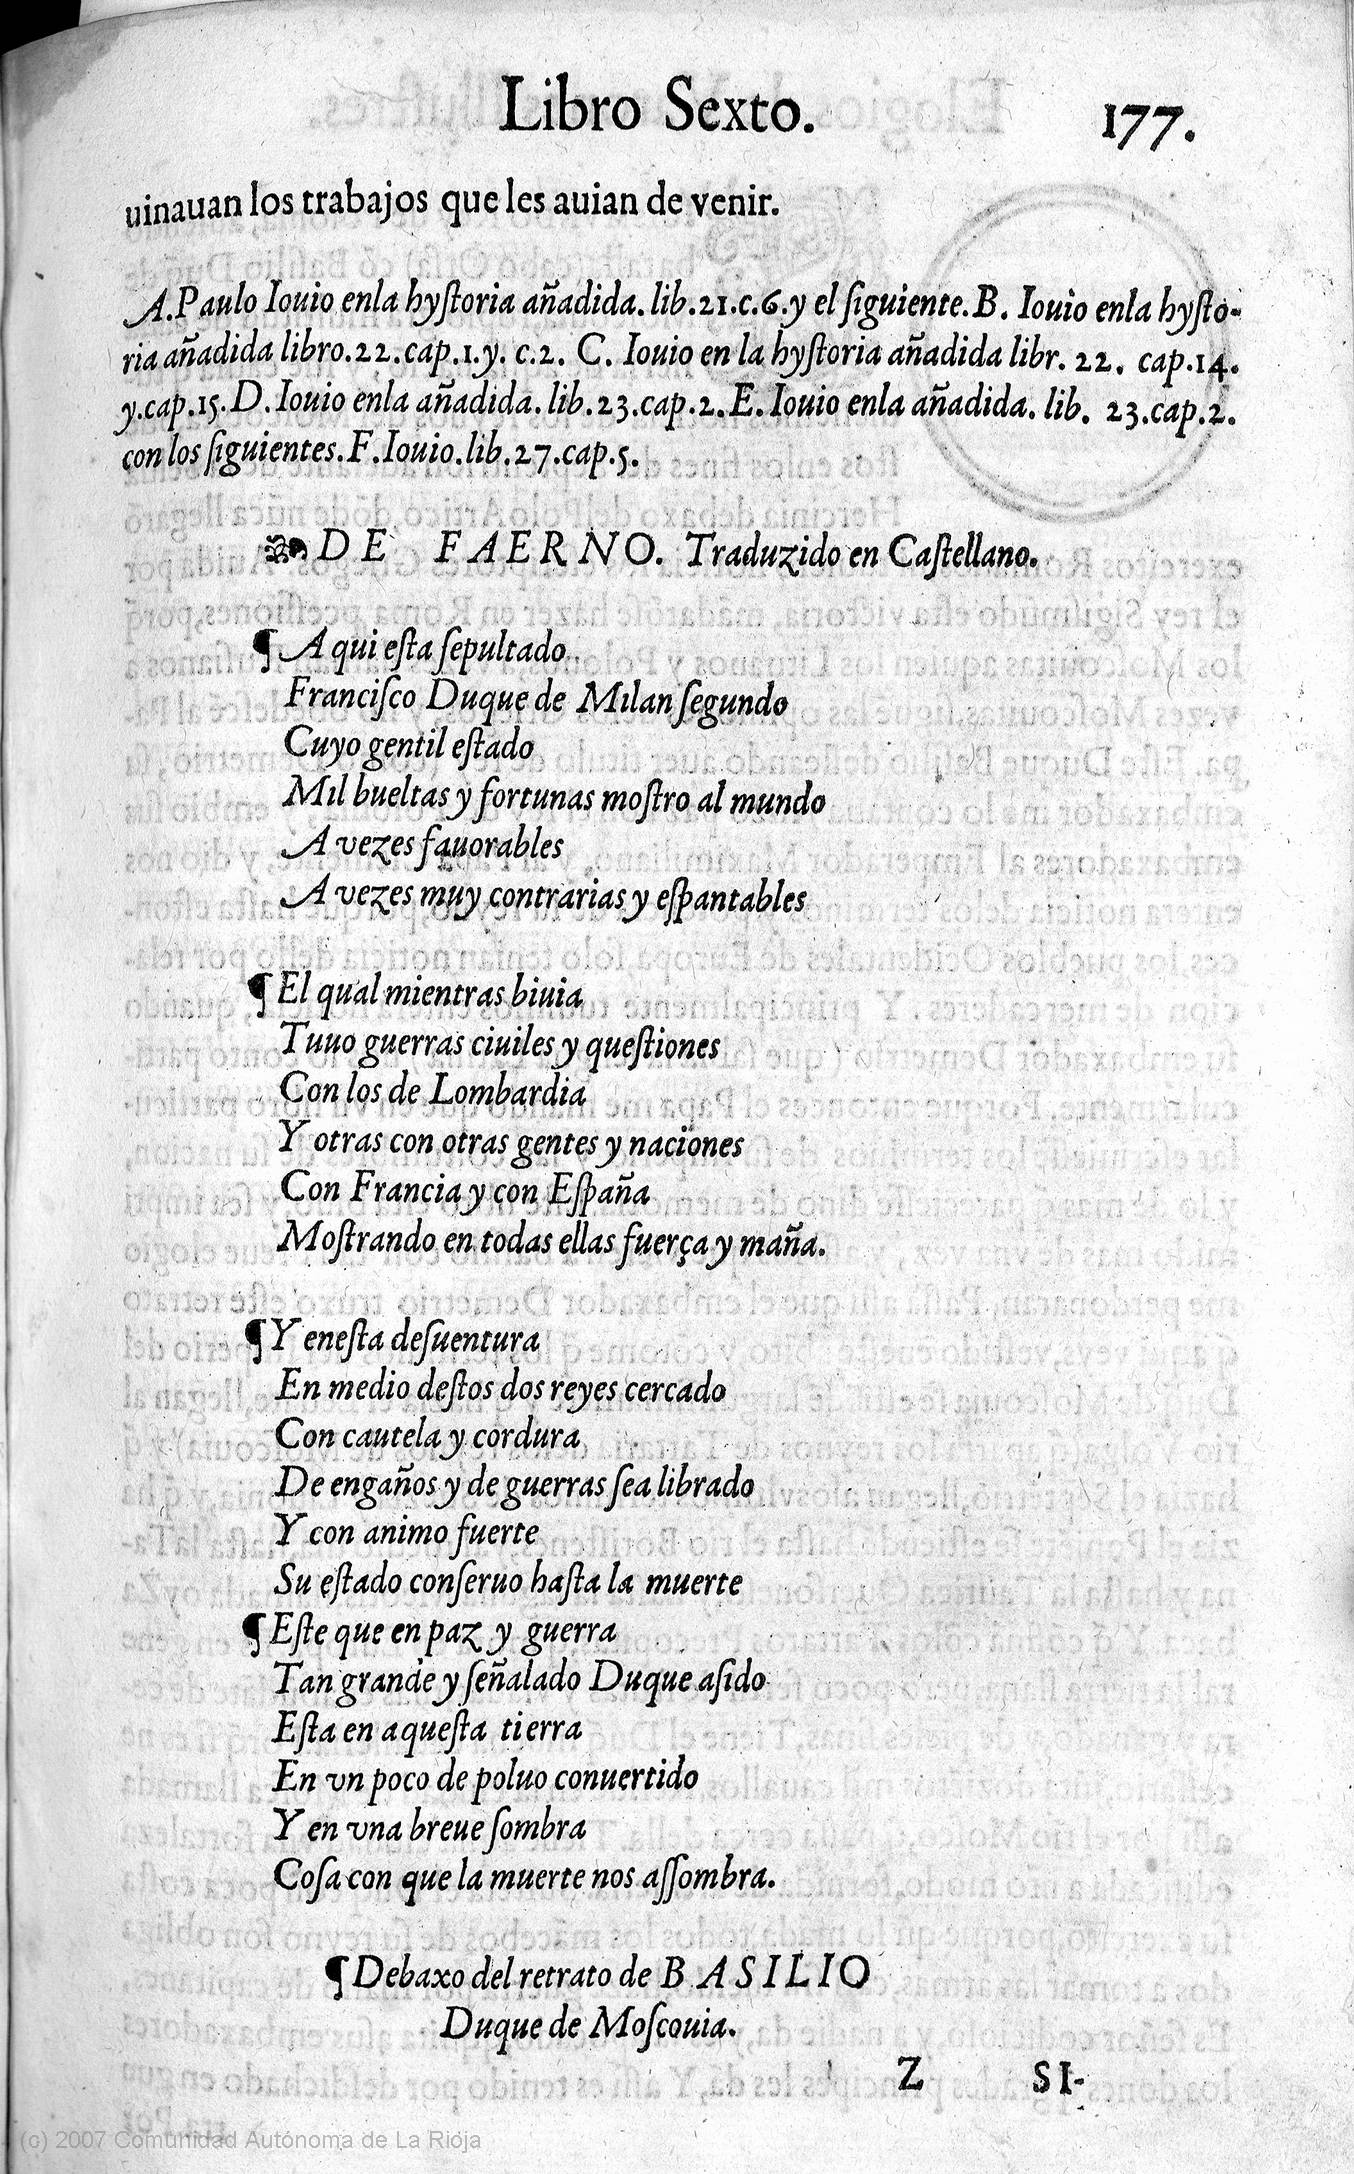 Libro Sexto. 177.
uinauan los trabajos que les auian de venir.
A. Paulo Iouio enla hyſtoria añadida. lib. 21. c. 6. y el ſiguiente. B. Iouio enla hyſto-
ria añadida libro. 22. cap. 1. y. c. 2. C. Iouio en la hyſtoria añadida libr. 22. cap. 14.
y. cap. 15. D. Iouio enla añadida. lib. 23. cap. 2. E. Iouio enla añadida. lib. 23. cap. 2.
con los ſiguientes. F. Iouio. lib. 27. cap. 5.
DE FAERNO. Traduzido en Caſtellano.
¶ A qui eſta ſepultado
Franciſco Duque de Milan ſegundo
Cuyo gentil eſtado
Mil bueltas y fortunas moſtro al mundo
A vezes fauorables
A vezes muy contrarias y eſpantables
¶ El qual mientras biuia
Tuuo guerras ciuiles y queſtiones
Con los de Lombardia
Y otras con otras gentes y naciones
Con Francia y con Eſpaña
Moſtrando en todas ellas fuerça y maña.
¶ Y eneſta deſuentura
En medio deſtos dos reyes cercado
Con cautela y cordura
De engaños y de guerras ſea librado
Y con animo fuerte
Su eſtado conſeruo haſta la muerte
¶ Eſte que en paz y guerra
Tan grande y ſeñalado Duque aſido
Eſta en aqueſta tierra
En vn poco de poluo conuertido
Y en vna breue ſombra
Coſa con que la muerte nos aſſombra.
¶ Debaxo del retrato de BASILIO
Duque de Moſcouia.
Z SI-
(c) 2007 Comunidad Autónoma de La Rioja